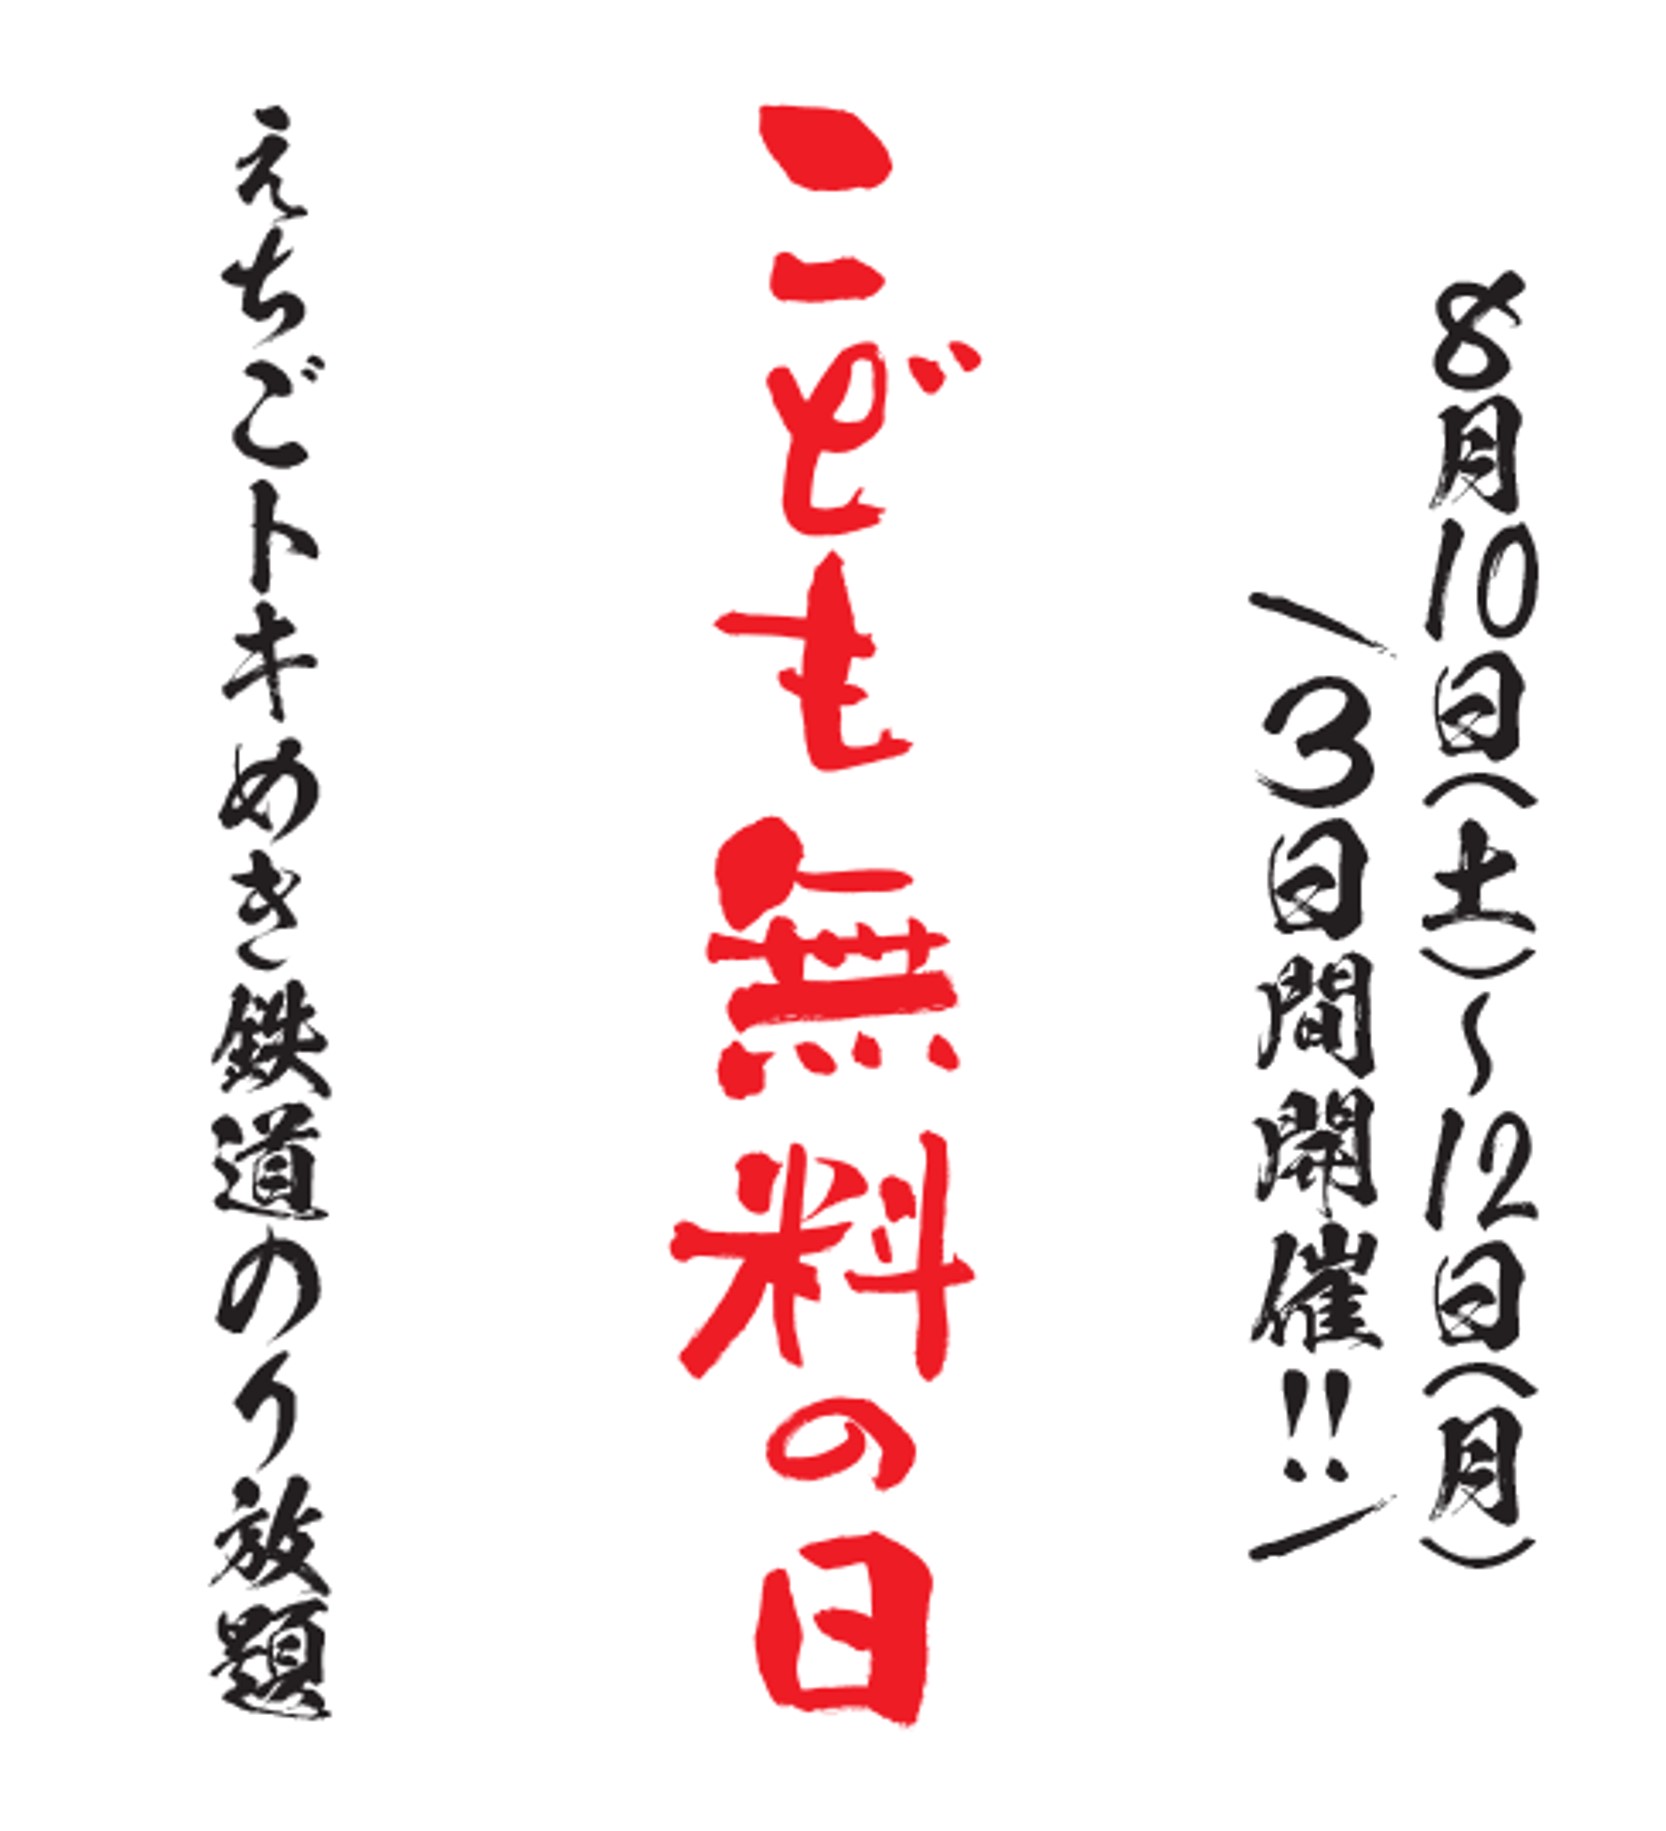 8月10日(土)～12日(月)
\3日間開催!!/
こども無料の日
えちごトキめき鉄道のり放題